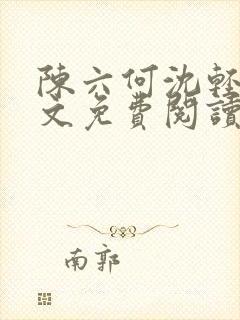 陳六何沈輕
文免費閱讀
南郭